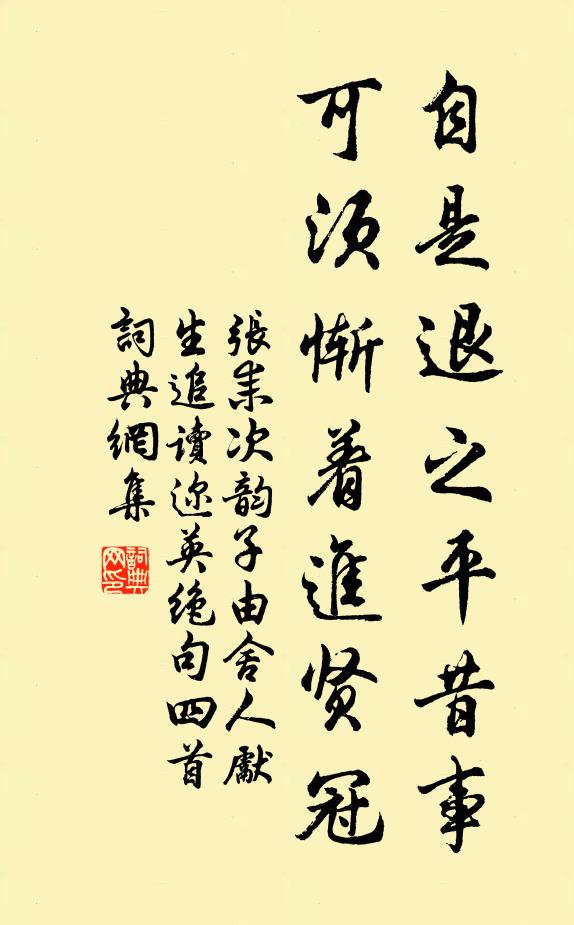 自是退之平昔事
可须慚着進贤冠
張耒次韵子由舍人獻
生追讀迩英绝句四首
詞典網集
詞典网印